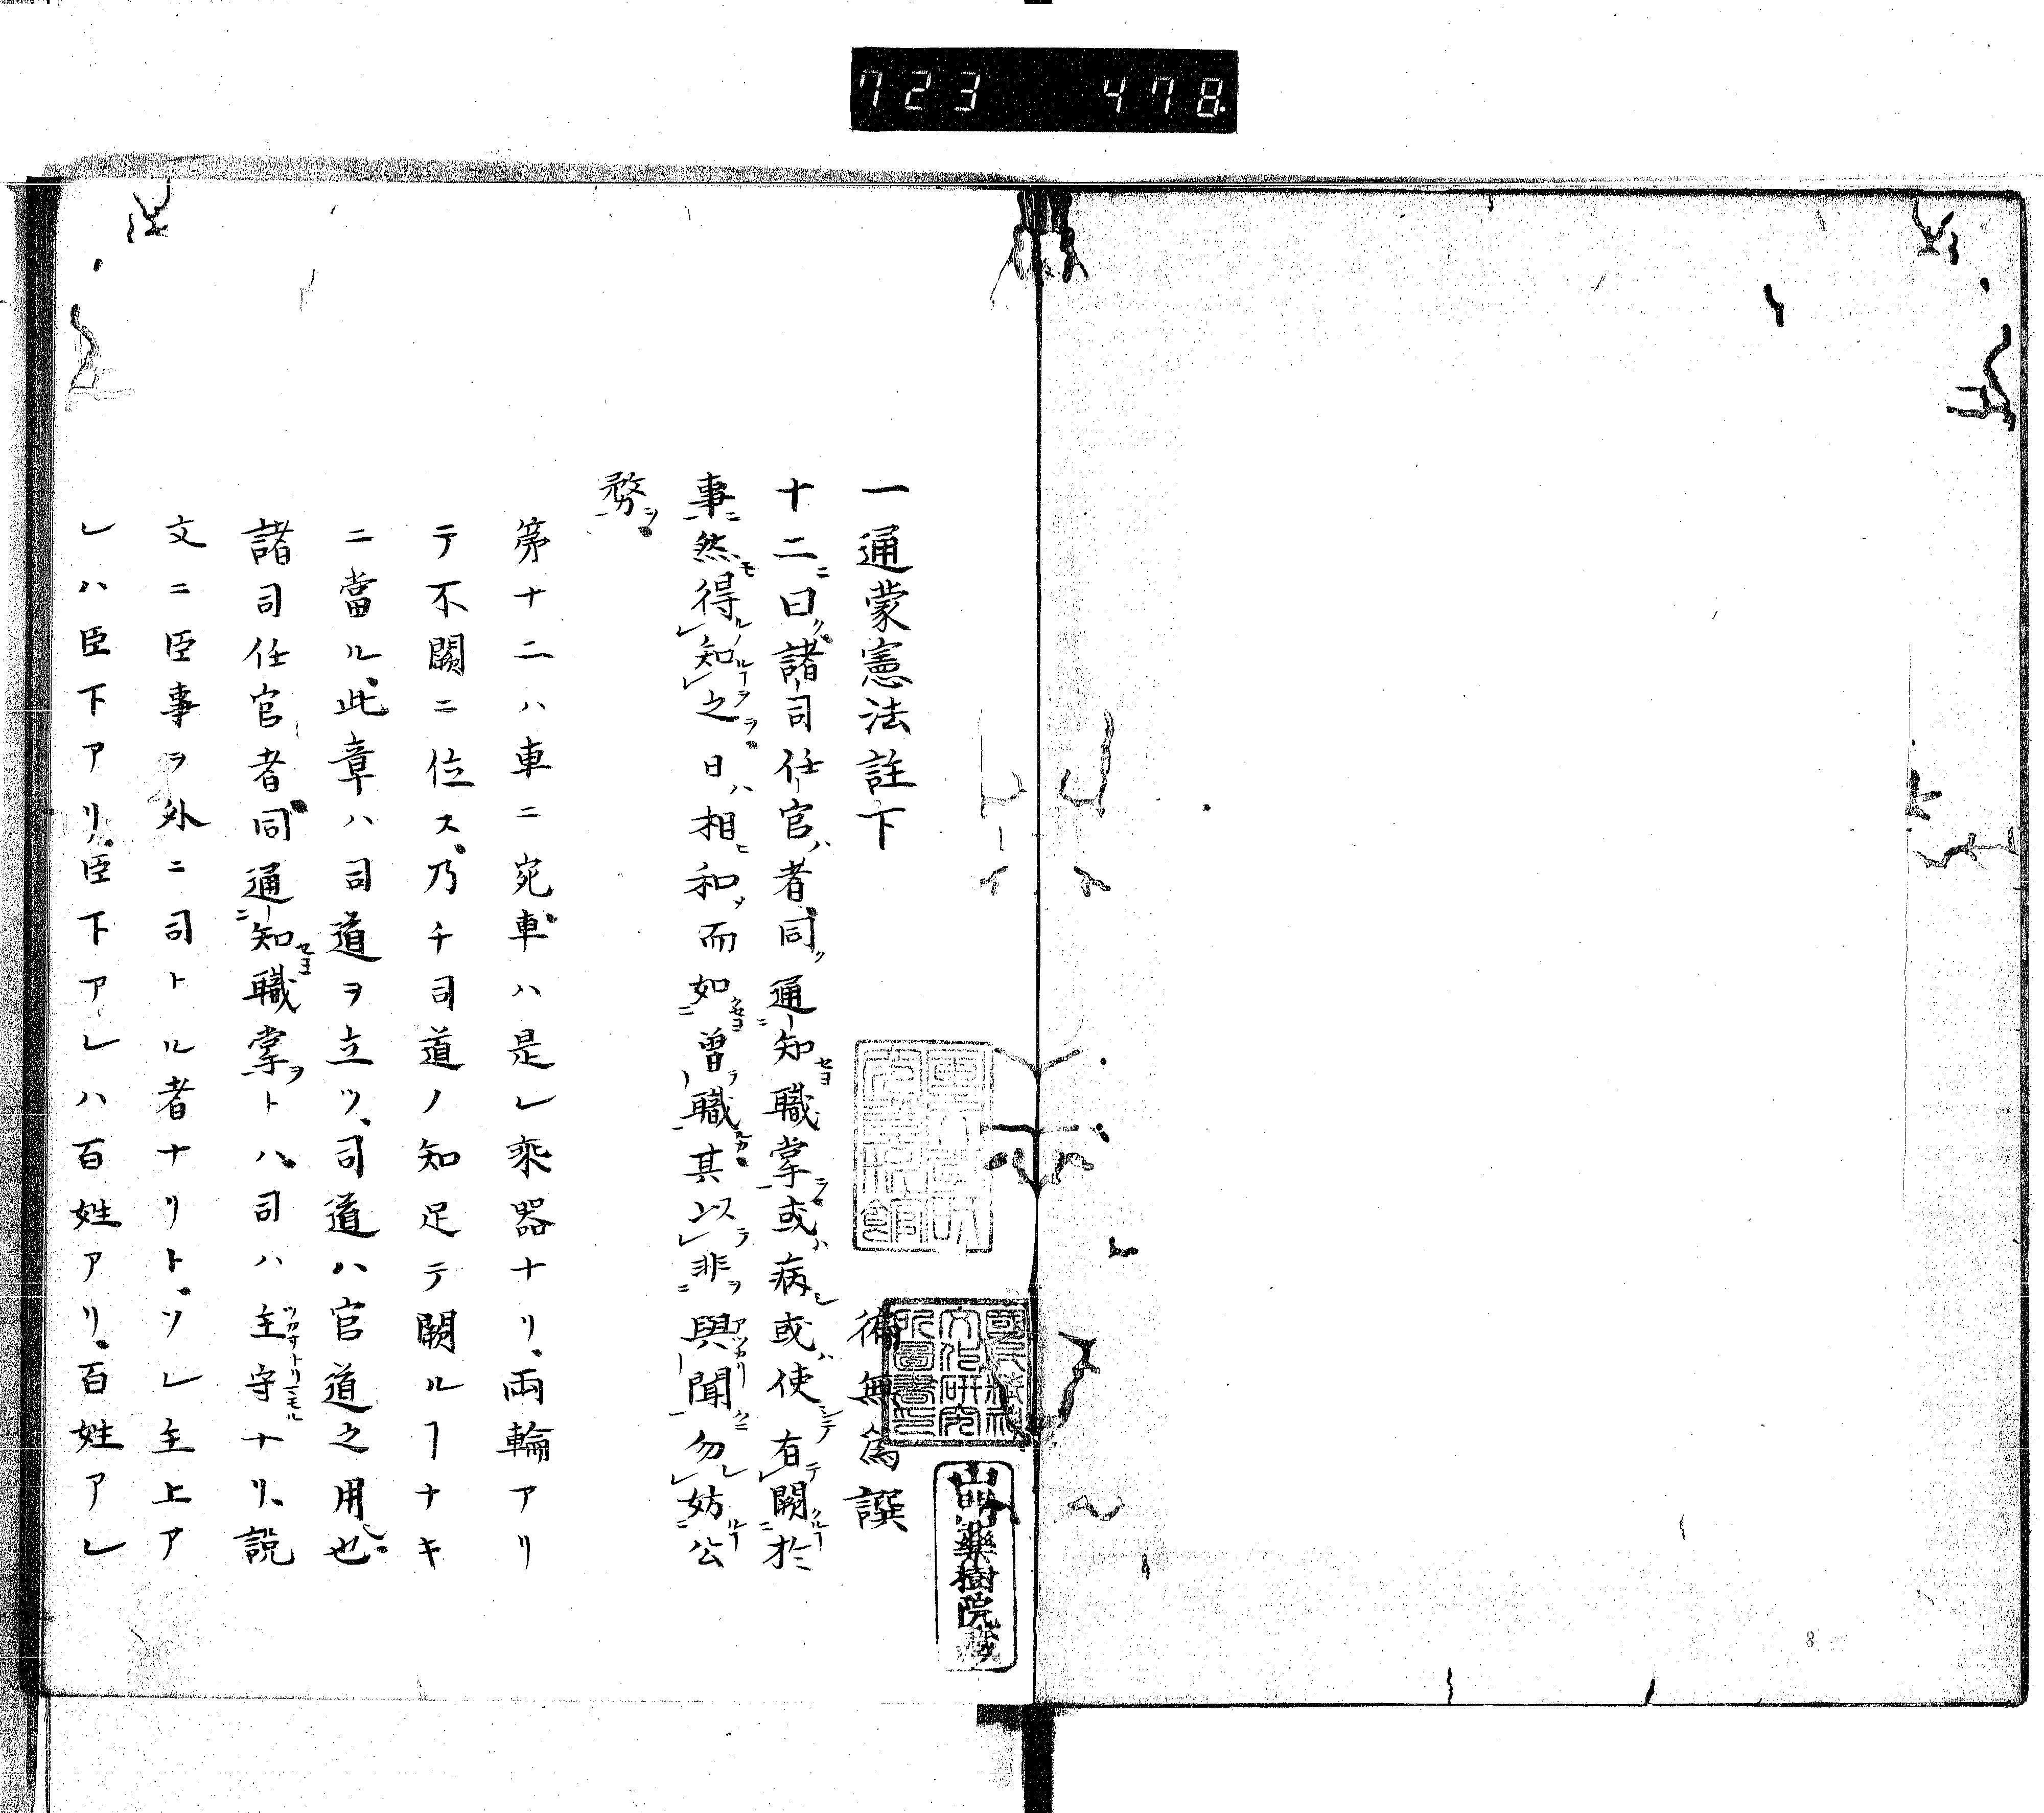 723 478
一通蒙憲法註下
無為譔
十二曰諸司任官者同通知職掌或病或使有闕於
事然得知之日相和而如曽職其以非與聞勿妨公
務
第十二ハ車ニ宛車ハ是レ乘器ナリ両輪アリ
テ不闕ニ位ス乃チ司道ノ知足テ闕ルヿナキ
ニ當ル此章ハ司道ヲ立ツ司道ハ官道之用也
諸司任官者同通知職掌トハ司ハ主守ナリ説
文ニ臣事ヲ外ニ司トル者ナリトソレ主上ア
レハ臣下アリ臣下アレハ百姓アリ百姓アレ
國文學研究資料館
山門藥樹院藏
8